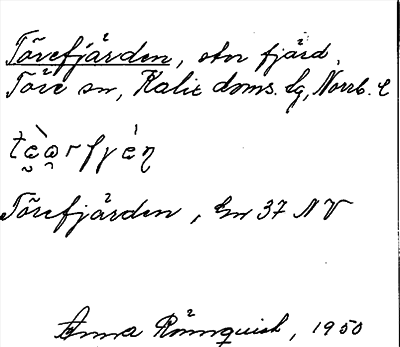 Törefjärden, stor fjärd,
Töre sn, Kalix doms. lg, Norrb. l
Törefjärden, Gn 37 NV
Anna Rönnquist, 1950